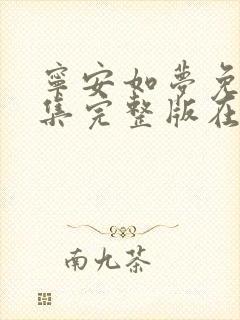 寧安如夢免
集完整版在
南九茶